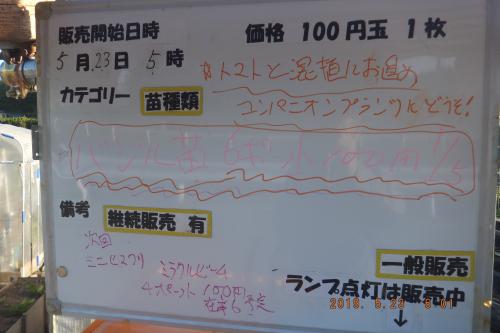 販売開始日時
価格 100円玉 1枚
5月23日 5時
トマトと混植にお勧め
カテゴリー 苗種類
コンパニオンプランツにどうぞ!
バジル苗 6ポット 100円 1/5
備考 継続販売 有
次回
ミニセスプリ
ミラクルビーム
4ポット 100円
在庫6 予定
一般販売
ランプ点灯は販売中
↓
2018. 5.23 6:01